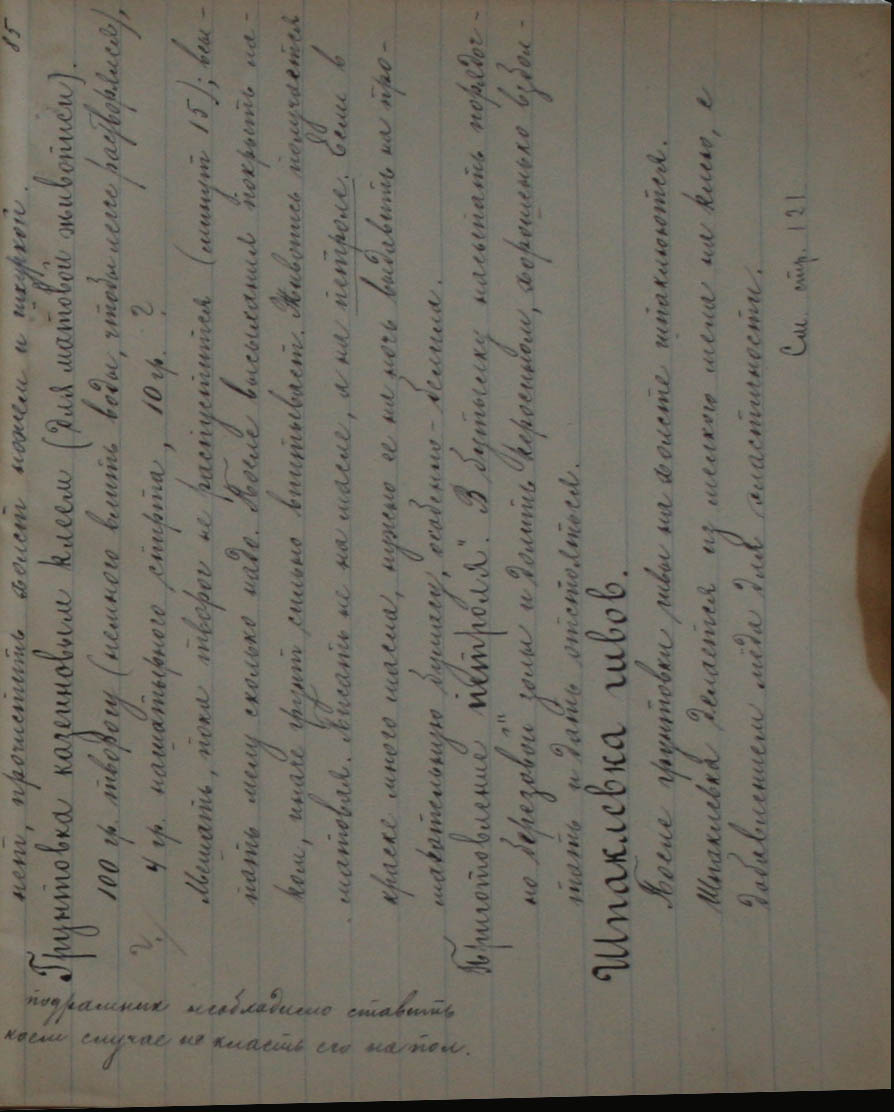 85
нет, прочистить холст ножем и шкуркой.
Грунтовка казеиновым клеем (для матовой живописи).
100 гр. творогу (немного влить воды, чтобы легче растворялся),
?/ 4 гр. нашатырного спирта, 10 гр. ?
Мешать, пока творог не распустится (минут 15); всы-
пать мелу сколько надо. После высыхания покрыть
ком, иначе грунт сильно впитывает. Живопись получается
матовая. Писать не на масле, а на петроле. Если в
краске много масла, нужно ее на ночь выдавить на про-
макательную бумагу, особенно - белила.
Приготовление "петроля". В бутылку насыпать порядоч-
но березовой золы и долить керосином, хорошенько взбол-
тать и дать отстояться.
Шпаклевка швов.
После грунтовки швы на холсте шпаклюются.
Шпаклевка делается из мелкого мела на клею, с
добавлением мёда для эластичности.
См. стр. 121
подрамник необходимо ставить
коем случае не класть его на пол.